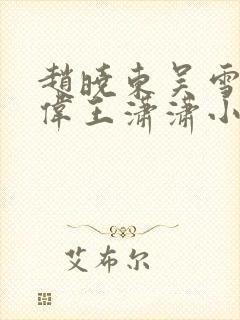 趙曉東吳雪
偉王瀟瀟小
艾布尔